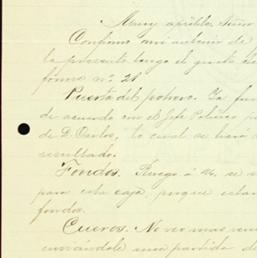 Muy apreble Señor
Confirmo mi anterior de
la presente tengo el gusto
nº 21
Puerta del potrero. Ya fué
de acuerdo con el Jefe Político
de D. Carlos, lo cual se hará
resultado.
Fondos. Ruego á U. se
para esta caja, porque estan
fondos.
Cueros. No no mas
enviándole una partida de